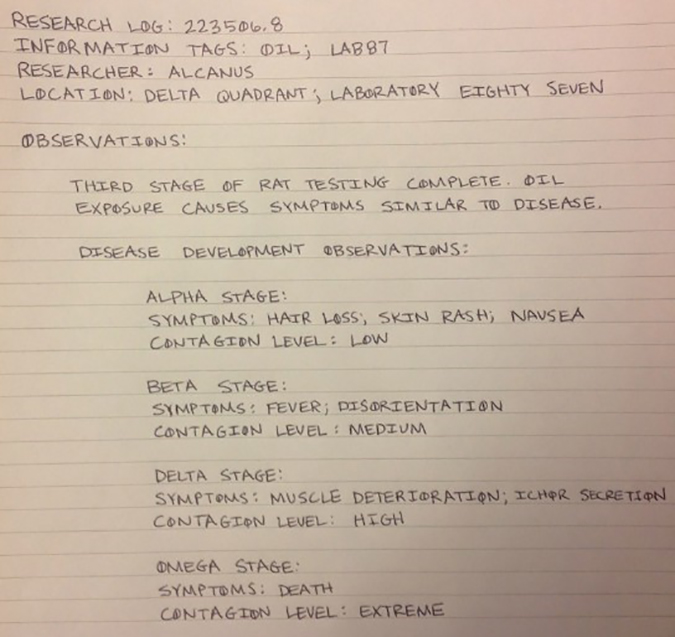 RESEARCH LOG: 223506.8
INFORMATION TAGS: OIL; LAB87
RESEARCHER: ALCANUS
LOCATION: DELTA QUADRANT; LABORATORY EIGHTY SEVEN
OBSERVATIONS:
THIRD STAGE OF RAT TESTING COMPLETE. OIL
EXPOSURE CAUSES SYMPTOMS SIMILAR TO DISEASE.
DISEASE DEVELOPMENT OBSERVATIONS:
ALPHA STAGE:
SYMPTOMS: HAIR LOSS; SKIN RASH; NAUSEA
CONTAGION LEVEL: LOW
BETA STAGE:
SYMPTOMS: FEVER; DISORIENTATION
CONTAGION LEVEL: MEDIUM
DELTA STAGE:
SYMPTOMS: MUSCLE DETERIORATION; ICHOR SECRETION
CONTAGION LEVEL: HIGH
OMEGA STAGE:
SYMPTOMS: DEATH
CONTAGION LEVEL: EXTREME